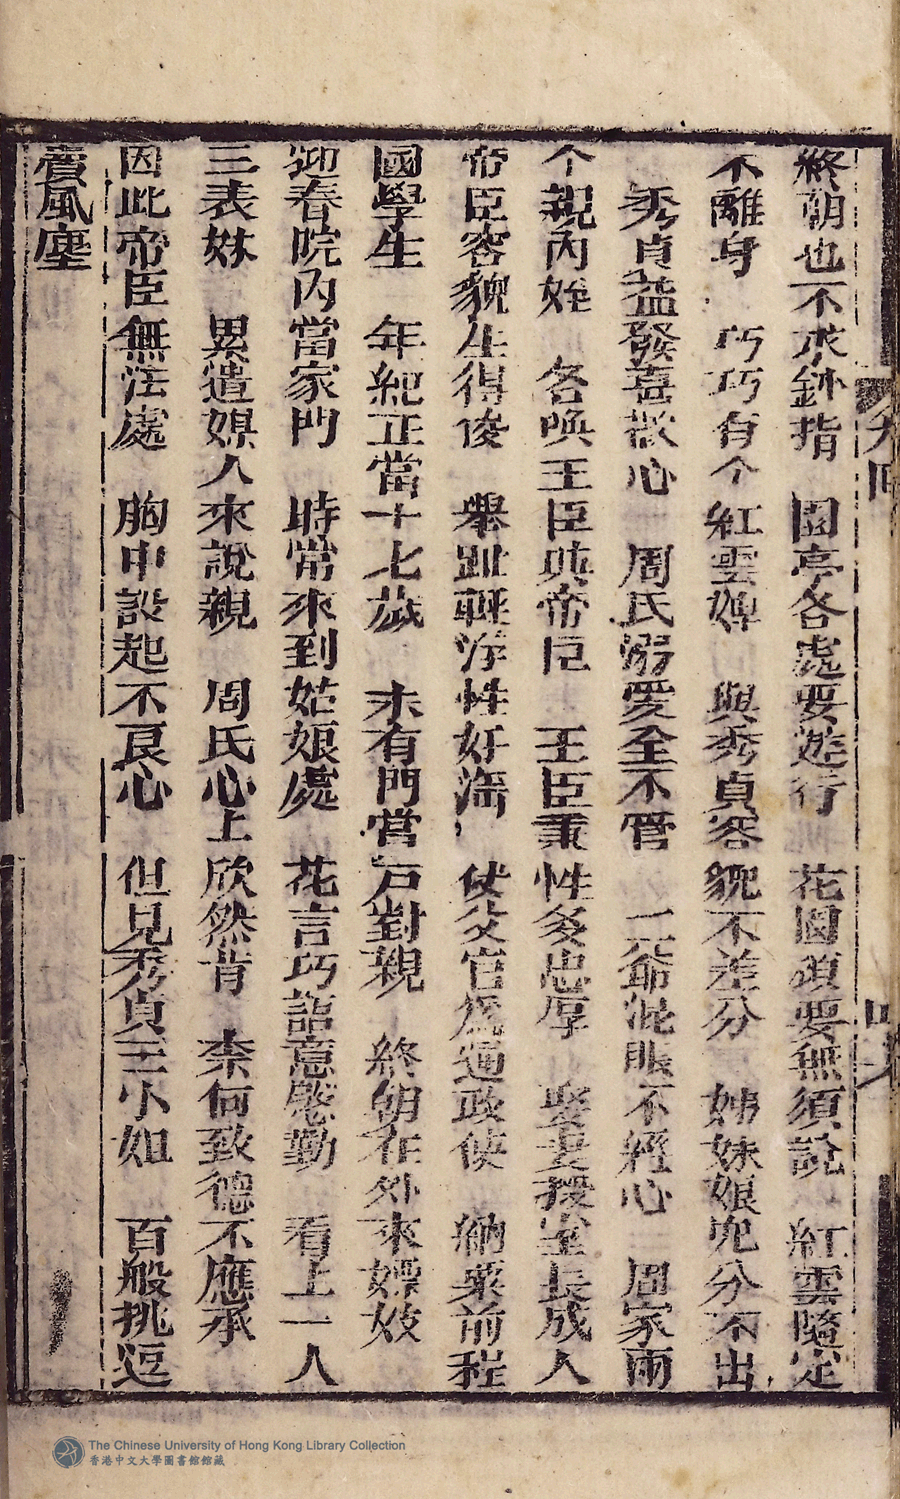 終朝也不求針指　園亭各處要遊行　花園頑要無須說　紅雲隨定
不離身　巧巧有个紅雲婢　與秀貞容貌不差分　姊妹娘兒分不出
秀貞益發喜歡心　周氏溺愛全不管　一爺混賬不經心　周家兩
个親內姪　各喚王臣與帝臣　王臣秉性多忠厚　娶妻授室長成人
帝臣容貌生得俊　舉趾輕浮性好滛　伏父官爲通政使　納粟前程
國學生　年紀正當十七歲　未有門當戶對親　終朝在外來嫖妓
迎春院內當家門　時常來到姑娘處　花言巧語意慇勤　看上一人
三表妹　累遣媒人來說親　周氏心上欣然肯　柰何致德不應承
因此帝臣無法處　胸中設起不良心　但見秀貞三小姐　百般挑逗
賣風塵
The Chinese University of Hong Kong Library Collection
香港中文大學圖書館館藏